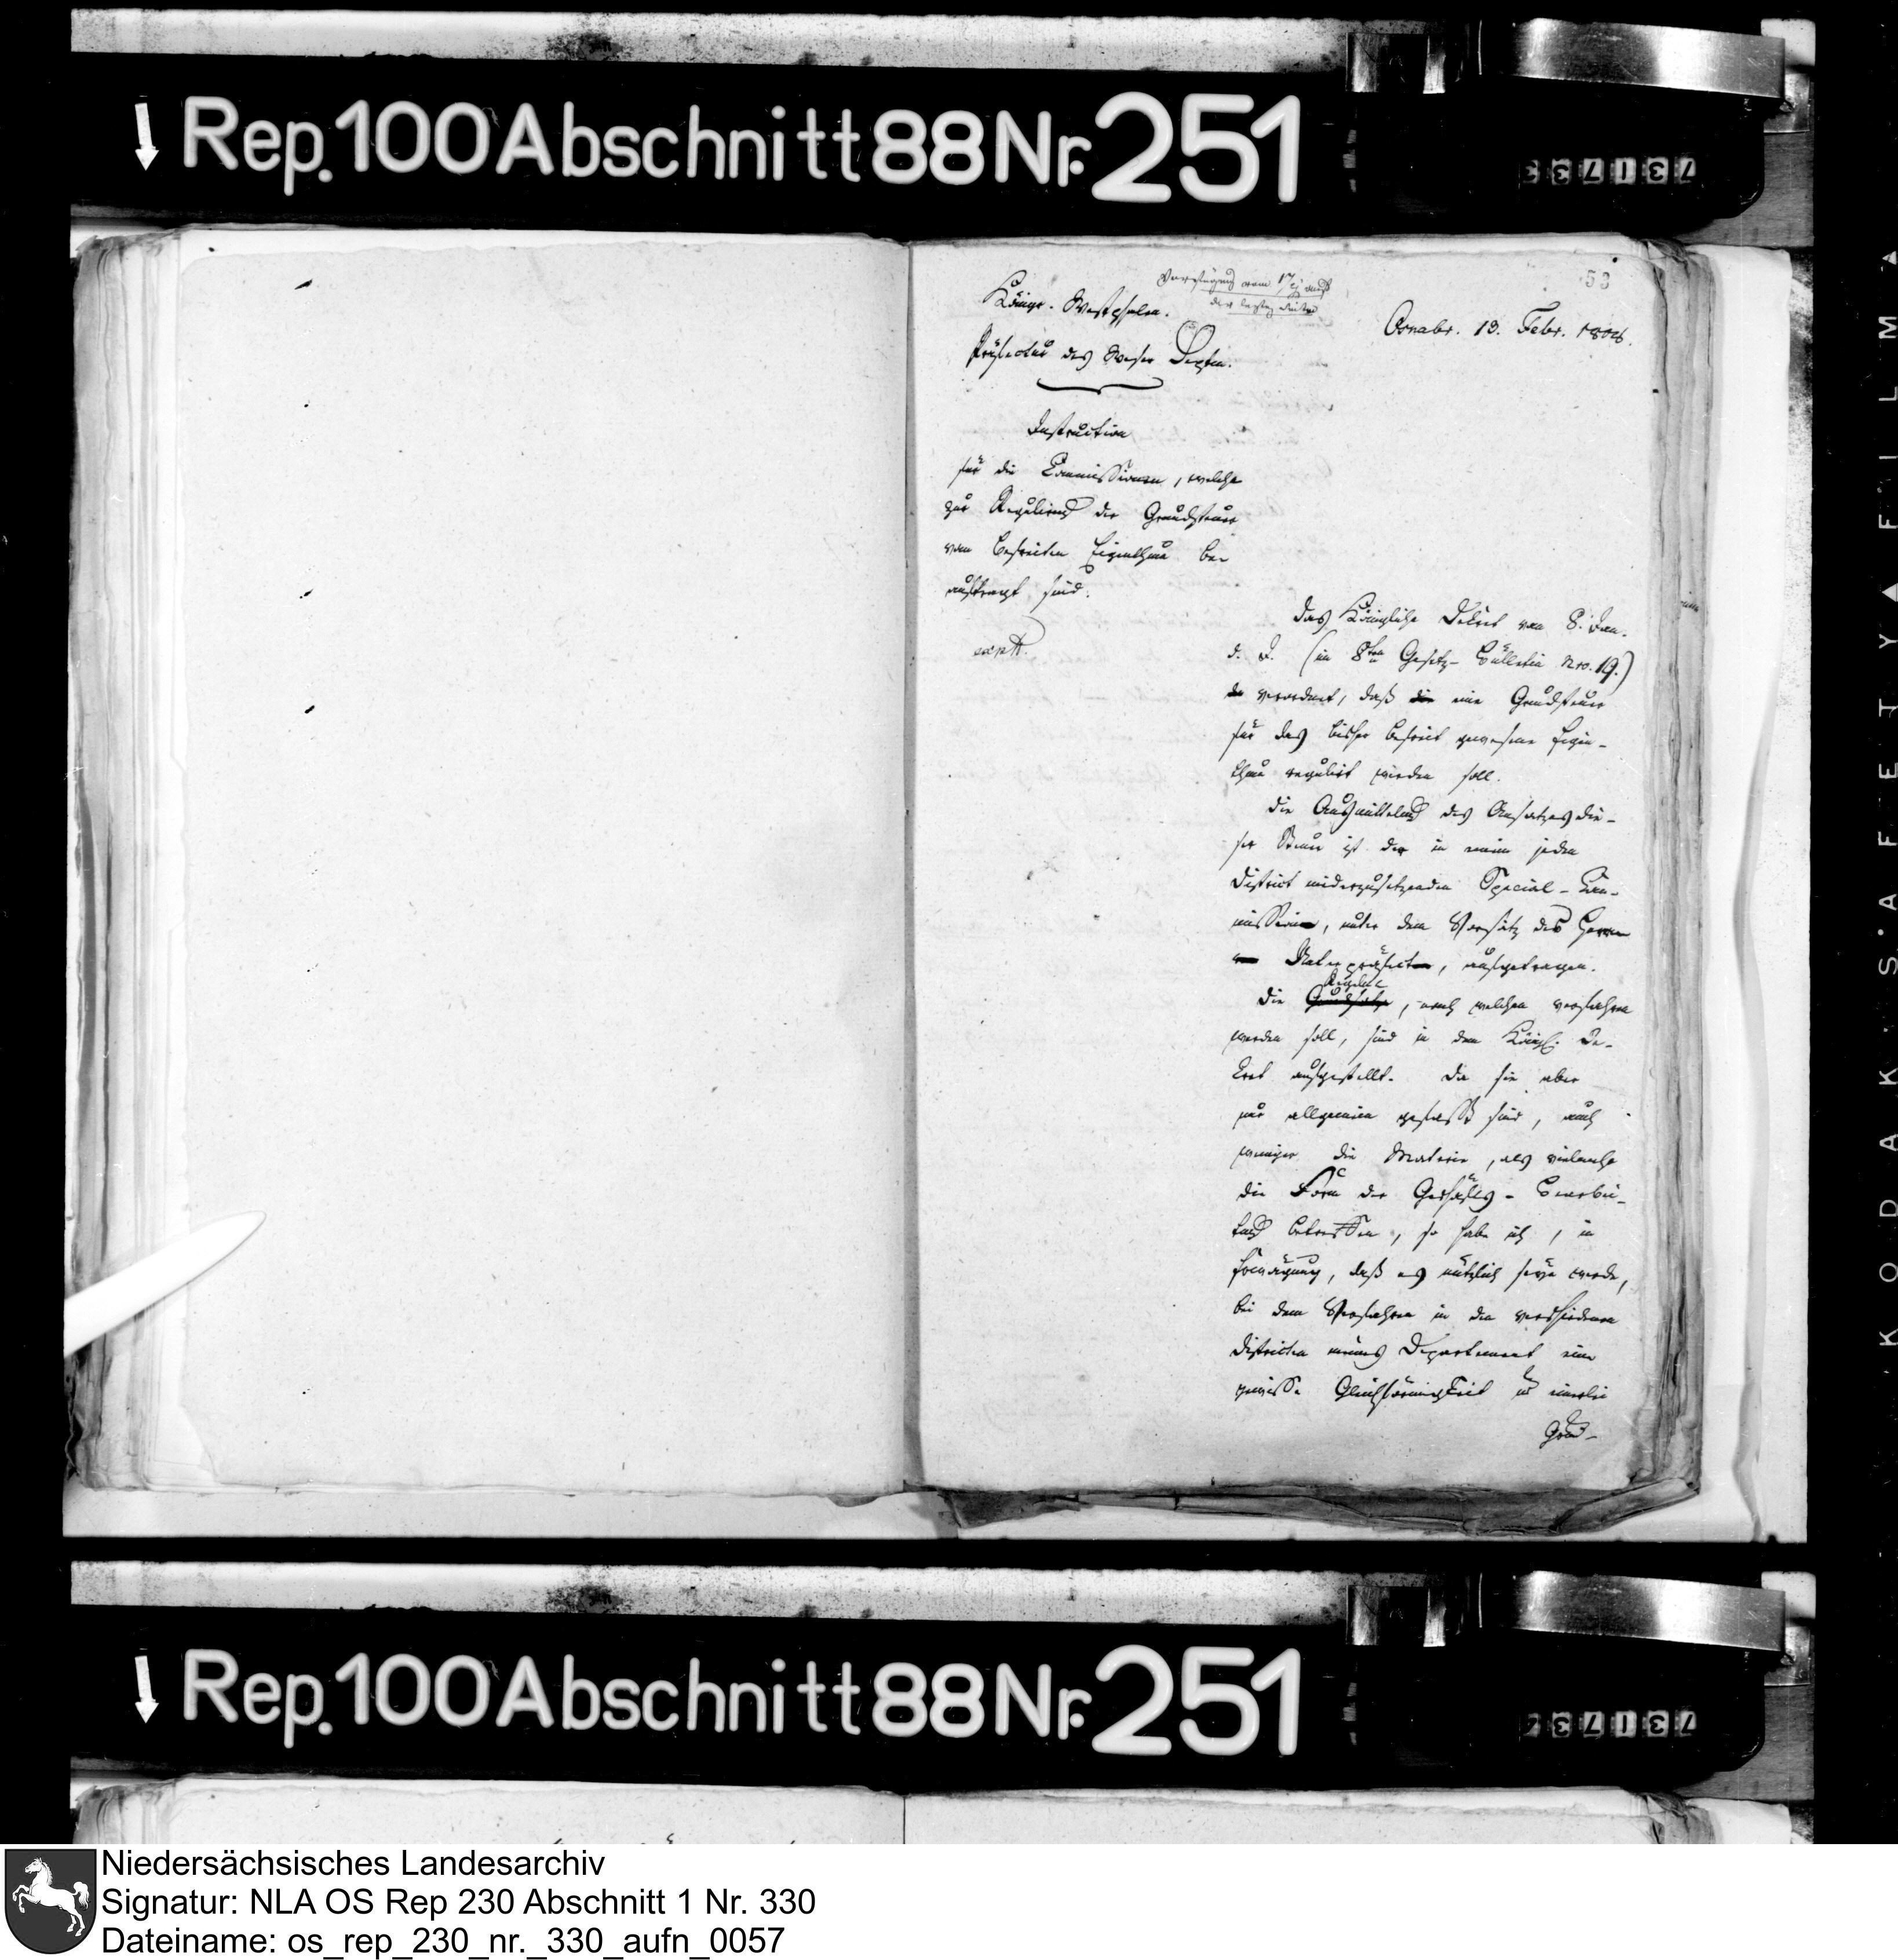 Rep. 100 Abschnitt 88 Nr. 251
731733
53
Verfügung vom
Königr. Westphalen.
Osnabr. 19. Febr. 1808.
Präfectur des Weser Depten.
Instruction
für die Commissionen, welche
zur Regulirung der Grundsteuer
vom befreiten Eigenthum be-
auftragt sind.
Das Königliche Dekret vom 8. Jan.
d. J. (im 8ten Gesetz-Bülletin Nro. 19.)
verordnet, daß die eine Grundsteuer
für das bisher befreit gewesene Eigen-
thum regulirt werden soll.
Die Ausmittelung des Ansatzes die-
ser Steuer ist der in einem jeden
District niederzusetzenden Special-Com-
mission, unter dem Vorsitz des Herrn
Unterpräfecten, aufgetragen.
Regeln
Die Grundsätze, nach welchen verfahren
werden soll, sind in dem Königl. De-
kret aufgestellt. Da sie aber
nur allgemein gefaßt sind, auch
weniger die Materie, als vielmehr
die Form der Geschäfts-Bearbei-
tung betreffen, so habe ich, in
Erwägung, daß es nützlich seyn werde,
bei dem Verfahren in den verschiedenen
Districten meines Departement eine
gewisse Gleichförmigkeit und einerlei
Grund-
Rep. 100 Abschnitt 88 Nr. 251
KODAK · SAFETY ▲ FILM ▲
Niedersächsisches Landesarchiv
Signatur: NLA OS Rep 230 Abschnitt 1 Nr. 330
Dateiname: os_rep_230_nr._330_aufn_0057